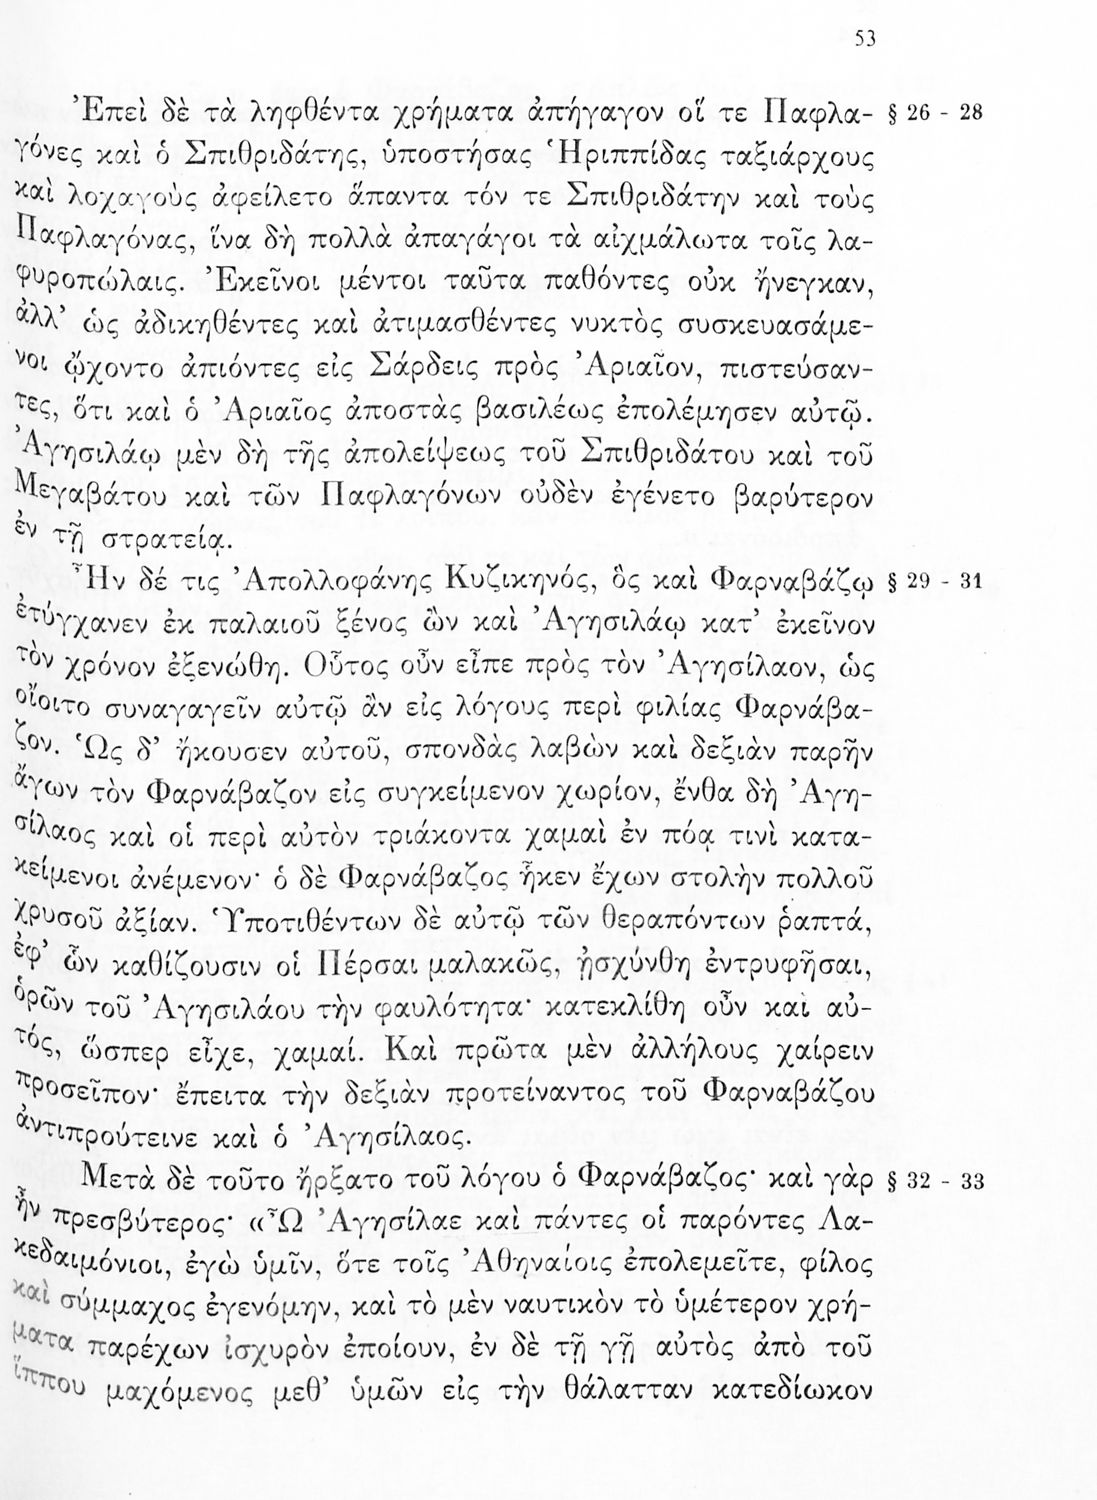 53
Ἐπεὶ δὲ τὰ ληφθέντα χρήματα ἀπήγαγον οἵ τε Παφλα- § 26 - 28
γόνες καὶ ὁ Σπιθριδάτης, ὑποστήσας Ἡριππίδας ταξιάρχους
καὶ λοχαγοὺς ἀφείλετο ἅπαντα τόν τε Σπιθριδάτην καὶ τοὺς
Παφλαγόνας, ἵνα δὴ πολλὰ ἀπαγάγοι τὰ αἰχμάλωτα τοῖς λα-
φυροπώλαις. Ἐκεῖνοι μέντοι ταῦτα παθόντες οὐκ ἤνεγκαν,
ἀλλ’ ὡς ἀδικηθέντες καὶ ἀτιμασθέντες νυκτὸς συσκευασάμε-
νοι ᾤχοντο ἀπιόντες εἰς Σάρδεις πρὸς Ἀριαῖον, πιστεύσαν-
τες, ὅτι καὶ ὁ Ἀριαῖος ἀποστὰς βασιλέως ἐπολέμησεν αὐτῷ.
Ἀγησιλάῳ μὲν δὴ τῆς ἀπολείψεως τοῦ Σπιθριδάτου καὶ τοῦ
Μεγαβάτου καὶ τῶν Παφλαγόνων οὐδὲν ἐγένετο βαρύτερον
ἐν τῇ στρατείᾳ.
Ἦν δέ τις Ἀπολλοφάνης Κυζικηνός, ὃς καὶ Φαρναβάζῳ § 29 - 31
ἐτύγχανεν ἐκ παλαιοῦ ξένος ὢν καὶ Ἀγησιλάῳ κατ’ ἐκεῖνον
τὸν χρόνον ἐξενώθη. Οὗτος οὖν εἶπε πρὸς τὸν Ἀγησίλαον, ὡς
οἴοιτο συναγαγεῖν αὐτῷ ἂν εἰς λόγους περὶ φιλίας Φαρνάβα-
ζον. Ὡς δ’ ἤκουσεν αὐτοῦ, σπονδὰς λαβὼν καὶ δεξιὰν παρῆν
ἄγων τὸν Φαρνάβαζον εἰς συγκείμενον χωρίον, ἔνθα δὴ Ἀγη-
σίλαος καὶ οἱ περὶ αὐτὸν τριάκοντα χαμαὶ ἐν πόᾳ τινὶ κατα-
κείμενοι ἀνέμενον· ὁ δὲ Φαρνάβαζος ἧκεν ἔχων στολὴν πολλοῦ
χρυσοῦ ἀξίαν. Ὑποτιθέντων δὲ αὐτῷ τῶν θεραπόντων ῥαπτά,
ἐφ’ ὧν καθίζουσιν οἱ Πέρσαι μαλακῶς, ᾐσχύνθη ἐντρυφῆσαι,
ὁρῶν τοῦ Ἀγησιλάου τὴν φαυλότητα· κατεκλίθη οὖν καὶ αὐ-
τός, ὥσπερ εἶχε, χαμαί. Καὶ πρῶτα μὲν ἀλλήλους χαίρειν
προσεῖπον· ἔπειτα τὴν δεξιὰν προτείναντος τοῦ Φαρναβάζου
ἀντιπρούτεινε καὶ ὁ Ἀγησίλαος.
Μετὰ δὲ τοῦτο ἤρξατο τοῦ λόγου ὁ Φαρνάβαζος· καὶ γὰρ § 32 - 33
ἦν πρεσβύτερος· «Ὦ Ἀγησίλαε καὶ πάντες οἱ παρόντες Λα-
κεδαιμόνιοι, ἐγὼ ὑμῖν, ὅτε τοῖς Ἀθηναίοις ἐπολεμεῖτε, φίλος
καὶ σύμμαχος ἐγενόμην, καὶ τὸ μὲν ναυτικὸν τὸ ὑμέτερον χρή-
ματα παρέχων ἰσχυρὸν ἐποίουν, ἐν δὲ τῇ γῇ αὐτὸς ἀπὸ τοῦ
ἵππου μαχόμενος μεθ’ ὑμῶν εἰς τὴν θάλατταν κατεδίωκον